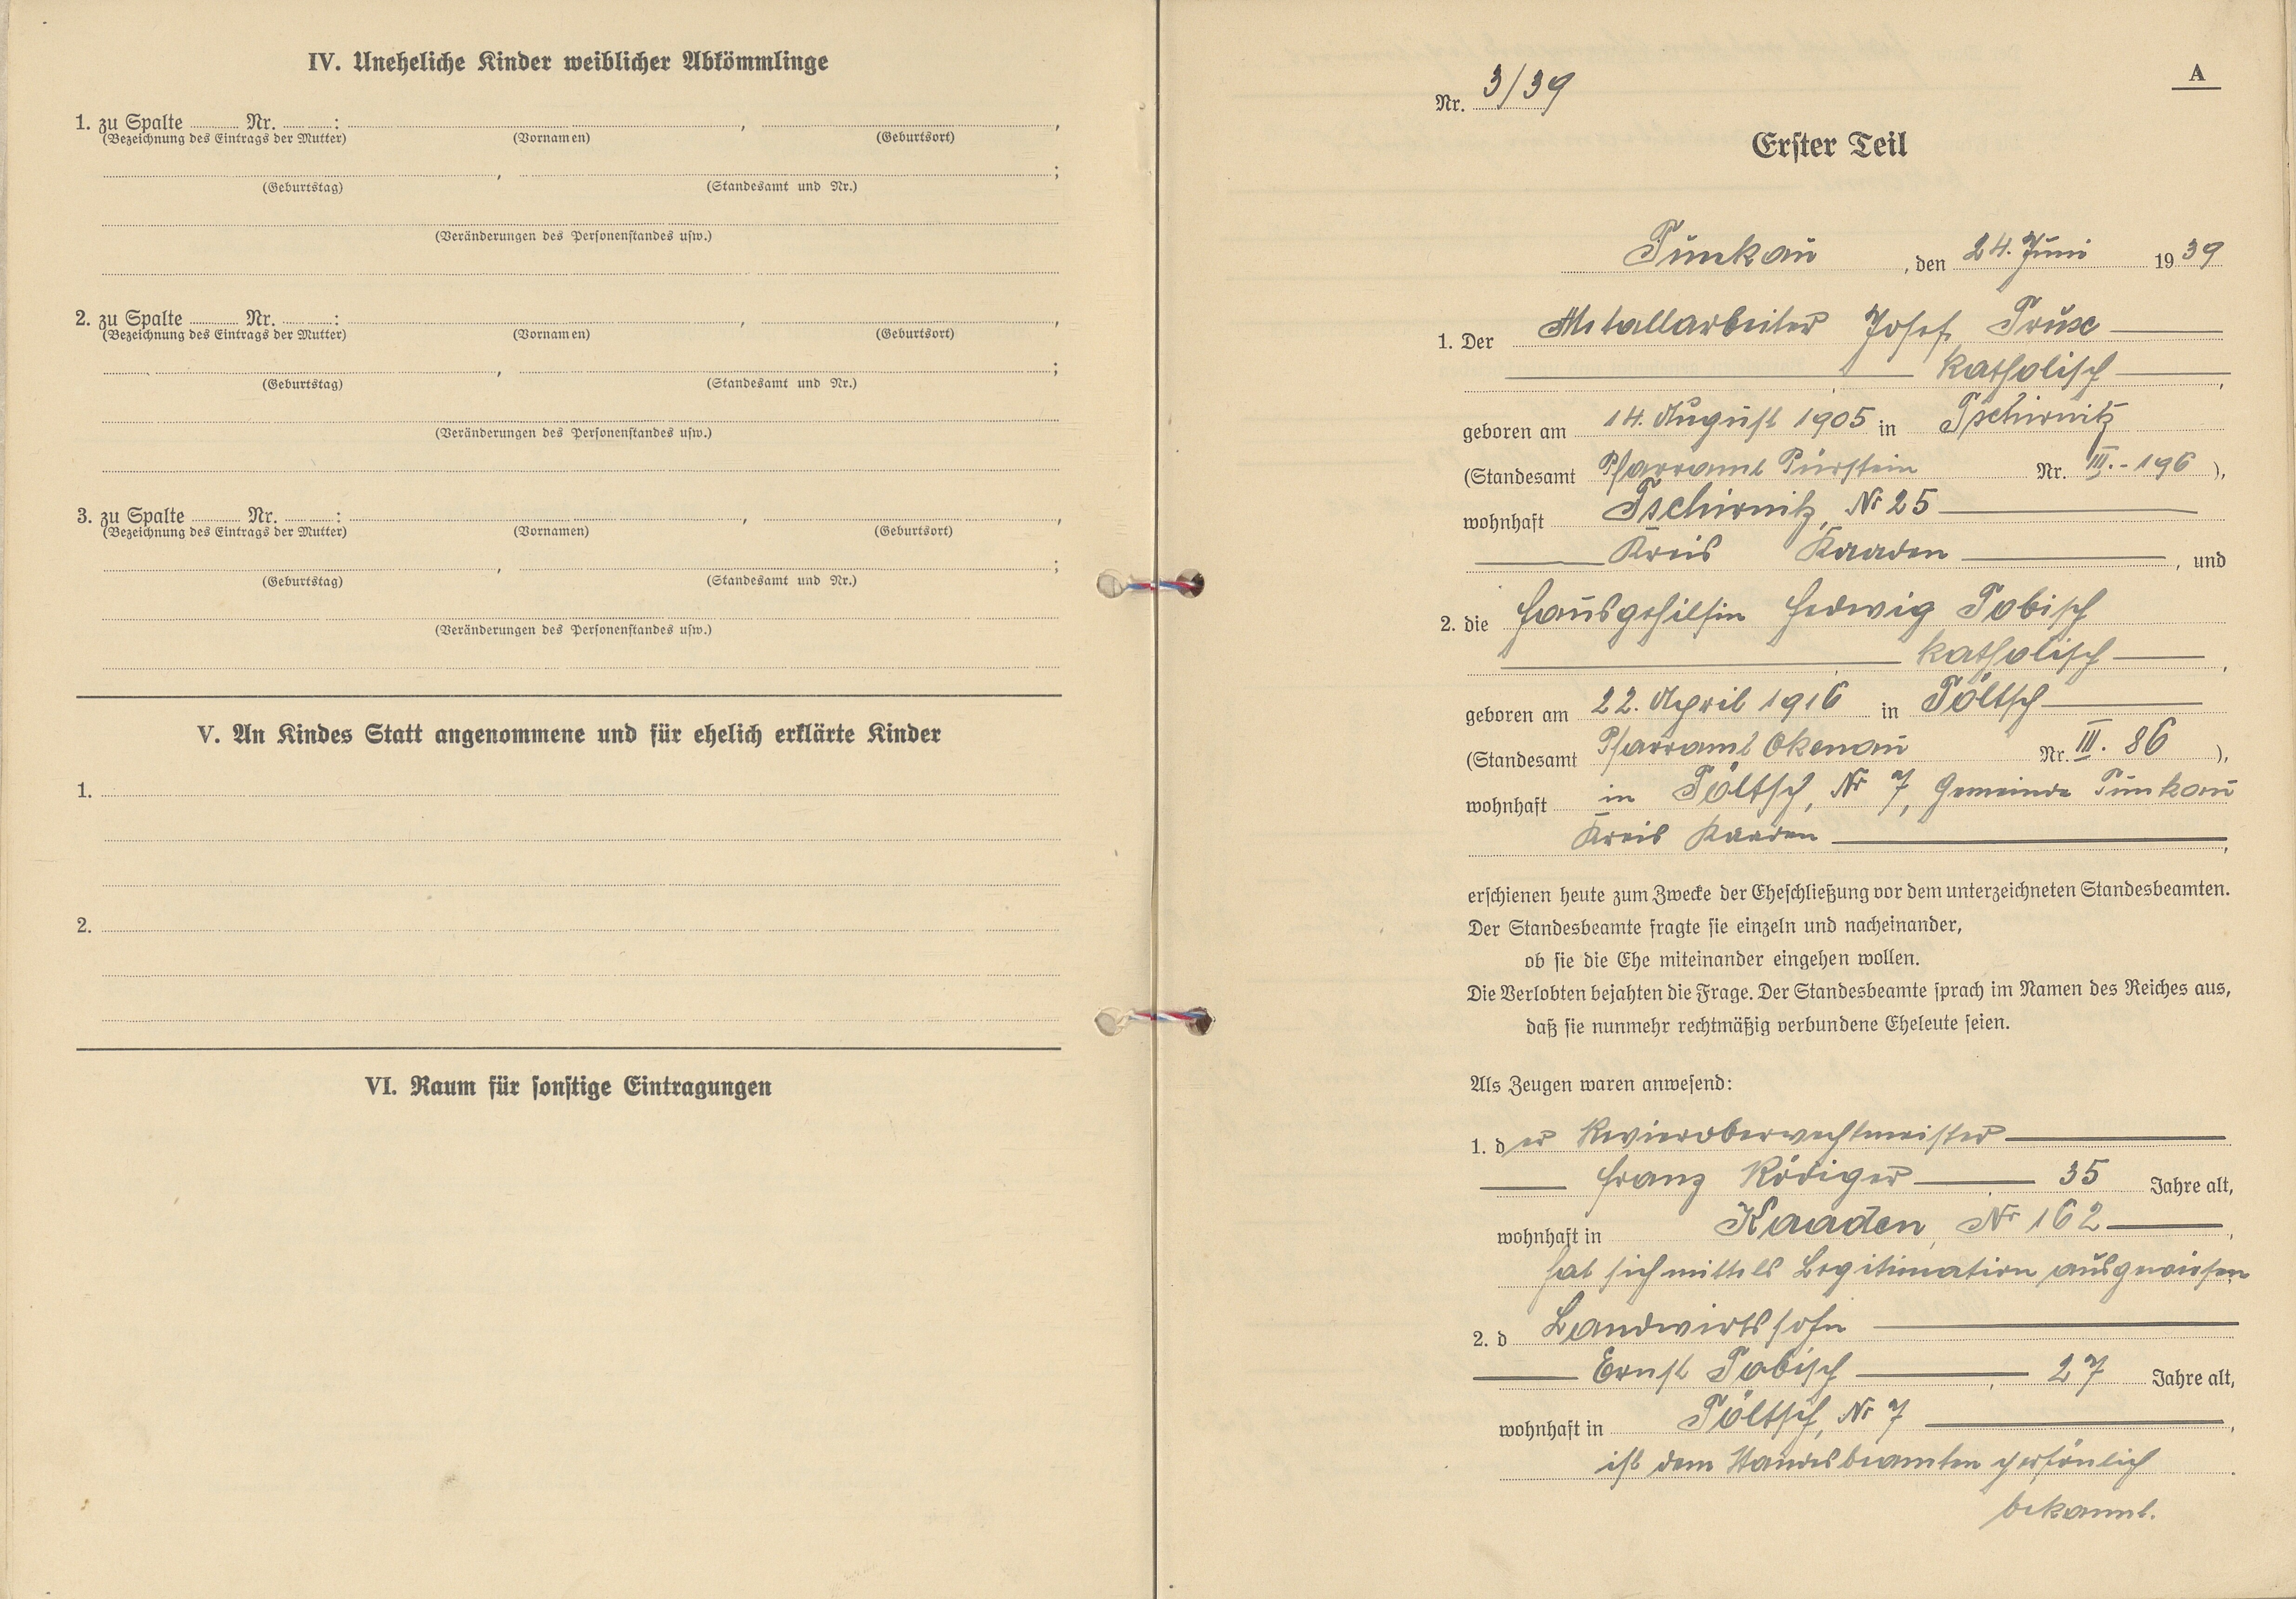 IV. Uneheliche Kinder weiblicher Abkömmlinge
1. zu Spalte ........ Nr. ........ : ........ , ........ ,
(Bezeichnung des Eintrags der Mutter) (Vornamen) (Geburtsort)
........ , ........ ;
(Geburtstag) (Standesamt und Nr.)
(Veränderungen des Personenstandes usw.)
2. zu Spalte ........ Nr. ........ : ........ , ........ ,
(Bezeichnung des Eintrags der Mutter) (Vornamen) (Geburtsort)
........ , ........ ;
(Geburtstag) (Standesamt und Nr.)
(Veränderungen des Personenstandes usw.)
3. zu Spalte ........ Nr. ........ : ........ , ........ ,
(Bezeichnung des Eintrags der Mutter) (Vornamen) (Geburtsort)
........ , ........ ;
(Geburtstag) (Standesamt und Nr.)
(Veränderungen des Personenstandes usw.)
V. An Kindes Statt angenommene und für ehelich erklärte Kinder
1.
2.
VI. Raum für sonstige Eintragungen
A
Nr. 3/39
Erster Teil
Tunkau, den 24. Juni 1939
1. Der Metallarbeiter Josef Trux
katholisch,
geboren am 14. August 1905 in Tschirnitz
(Standesamt Pfarramt Pürstein Nr. III.-196),
wohnhaft Tschirnitz, Nr 25
Kreis Kaaden, und
2. die Hausgehilfin Hedwig Tobisch
katholisch,
geboren am 22. April 1916 in Töltsch
(Standesamt Pfarramt Okenau Nr. III. 86),
wohnhaft in Töltsch, Nr 7, Gemeinde Tunkau
Kreis Kaaden,
erschienen heute zum Zwecke der Eheschließung vor dem unterzeichneten Standesbeamten.
Der Standesbeamte fragte sie einzeln und nacheinander,
ob sie die Ehe miteinander eingehen wollen.
Die Verlobten bejahten die Frage. Der Standesbeamte sprach im Namen des Reiches aus,
daß sie nunmehr rechtmäßig verbundene Eheleute seien.
Als Zeugen waren anwesend:
1. der Revieroberwachtmeister
Franz Rödiger 35 Jahre alt,
wohnhaft in Kaaden, Nr 162,
hat sich mittels Legitimation ausgewiesen
2. d Landwirtssohn
Ernst Tobisch, 27 Jahre alt,
wohnhaft in Töltsch, Nr 7,
ist dem Standesbeamten persönlich
bekannt.